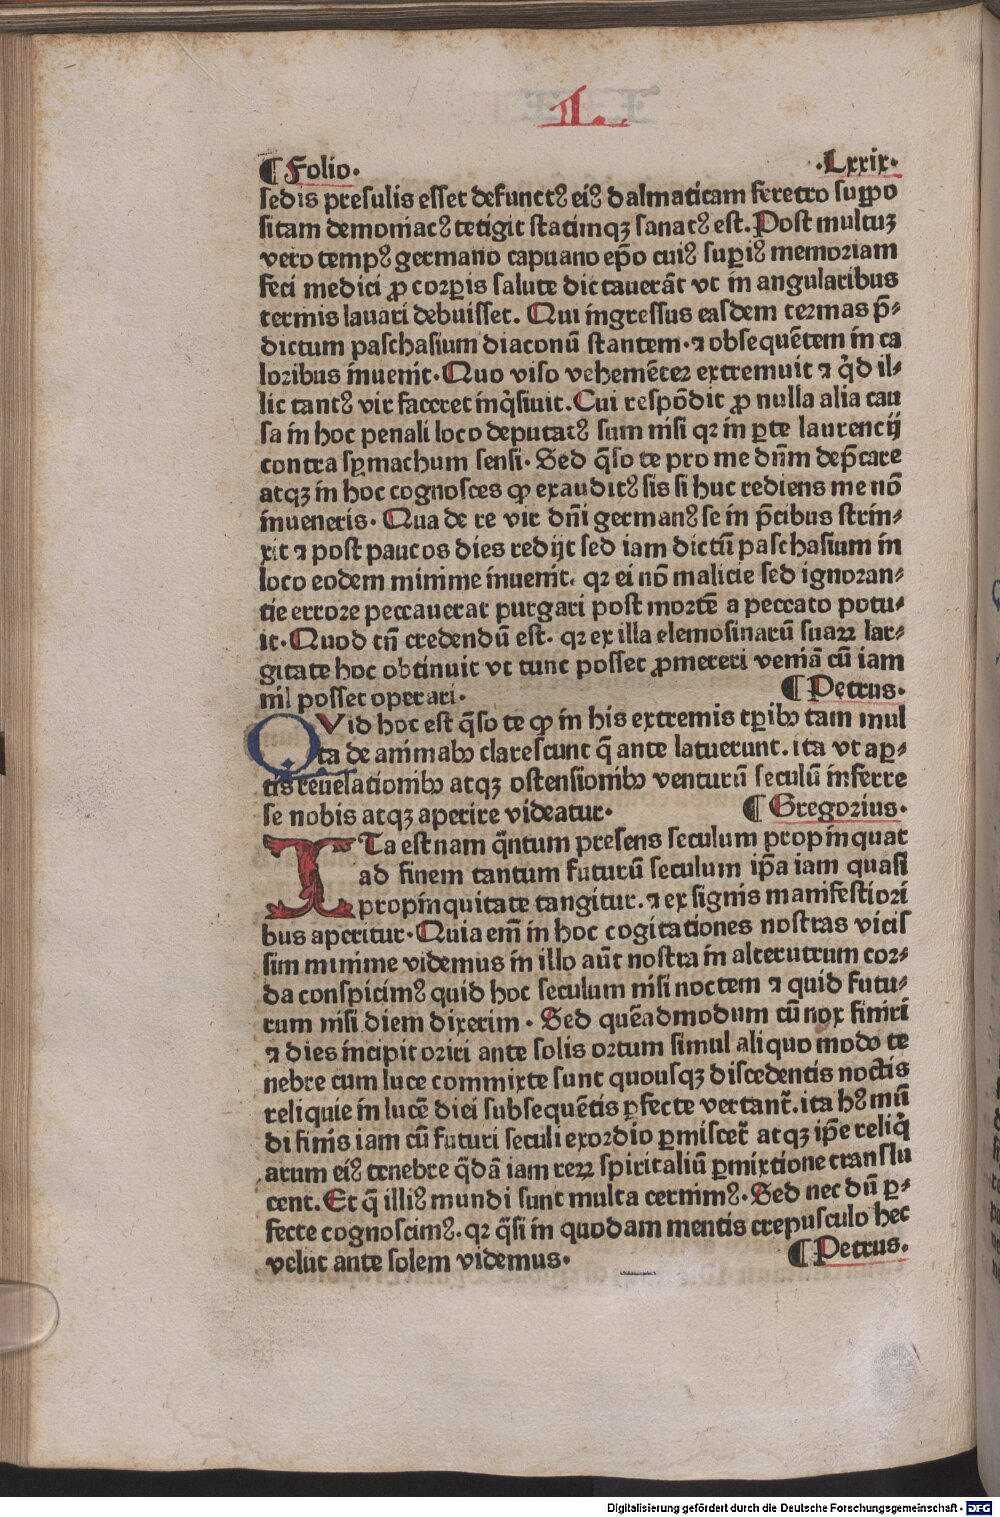 L.
¶ Folio. .Lxxix.
sedis presulis esset defunctꝰ eiꝰ dalmaticam feretro suppo
sitam demoniacꝰ tetigit statimqꝫ sanatꝰ est. Post multuꝫ
vero tempꝰ germano capuano ep̄o cuiꝰ supiꝰ memoriam
feci medici ꝓ corꝑis salute dictauerāt vt in angularibus
termis lauari debuisset. Qui ingressus easdem termas p̄⸗
dictum paschasium diaconū stantem. ⁊ obsequētem in ca
loribus inuenit. Quo viso vehemēter extremuit ⁊ qͥd il⸗
lic tantꝰ vir faceret inqͥsiuit. Cui respōdit ꝓ nulla alia cau
sa in hoc penali loco deputatꝰ sum nisi qꝛ in ꝑte laurencij
contra sẏmachum sensi. Sed q̄so te pro me dn̄m dep̄care
atqꝫ in hoc cognosces ꝙ exauditꝰ sis si huc rediens me nō
inueneris. Qua de re vir dn̄i germanꝰ se in p̄cibus strin⸗
xit ⁊ post paucos dies redijt sed iam dictū paschasium in
loco eodem minime inuenit. qꝛ ei nō malicie sed ignoran⸗
tie errore peccauerat purgari post mortē a peccato potu⸗
it. Quod tn̄ credendū est. qꝛ ex illa elemosinarū suaꝝ lar⸗
gitate hoc obtinuit vt tunc posset ꝓmereri veniā cū iam
nil posset operari. ¶ Petrus.
QVid hoc est q̄so te ꝙ in his extremis tꝑibꝰ tam mul
ta de animabꝰ clarescunt q̄ ante latuerunt. ita vt aꝑ⸗
tis reuelationibꝰ atqꝫ ostensionibꝰ venturū seculū inferre
se nobis atqꝫ aperire videatur. ¶ Gregorius.
ITa est nam q̄ntum presens seculum propinquat
ad finem tantum futurū seculum ip̄a iam quasi
propinquitate tangitur. ⁊ ex signis manifestiori
bus aperitur. Quia em̄ in hoc cogitationes nostras vicis
sim minime videmus in illo aūt nostra in alterutrum cor⸗
da conspicimꝰ quid hoc seculum nisi noctem ⁊ quid futu⸗
rum nisi diem dixerim. Sed quēadmodum cū nox finiri
⁊ dies incipit oriri ante solis ortum simul aliquo modo te
nebre cum luce commixte sunt quousqꝫ discedentis noctis
reliquie in lucē diei subsequētis ꝑfecte vertant᷑. ita hꝰ mū
di finis iam cū futuri seculi exordio ꝑmiscet᷑ atqꝫ ip̄e reliqͥ
arum eiꝰ tenebre q̄dā iam reꝝ spiritaliū ꝑmixtione translu
cent. Et q̄ illiꝰ mundi sunt multa cernimꝰ. Sed nec dū ꝑ⸗
fecte cognoscimꝰ. qꝛ q̄si in quodam mentis crepusculo hec
velut ante solem videmus. ¶ Petrus.
Digitalisierung gefördert durch die Deutsche Forschungsgemeinschaft - DFG